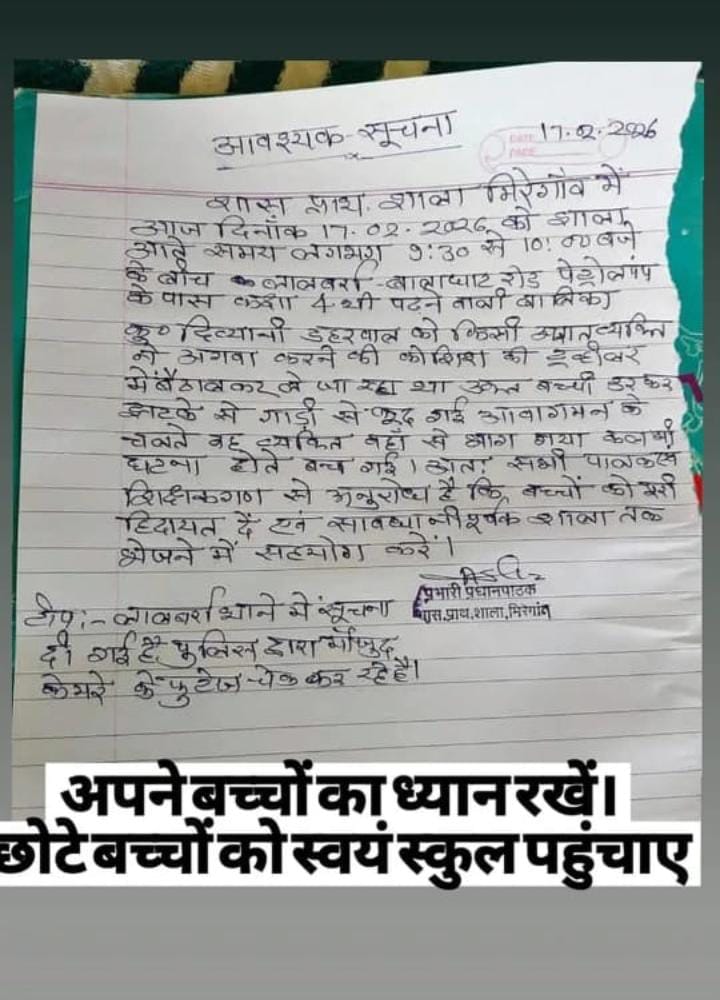 आवश्यक-सूचना
DATE 17.02.2026
PAGE
शास प्राथ. शाला मिरेगाँव में
आज दिनाँक 17.02.2026 को शाला
आते समय लगभग 9:30 से 10:00 बजे
के बीच लालबर्रा-बालाघाट रोड पेट्रोलपंप
के पास कक्षा 4 थी पढ़ने वाली बालिका
कु० दिव्यानी डहरवाल को किसी अज्ञात व्यक्ति
ने अगवा करने की कोशिश की टू व्हीलर
में बैठालकर ले जा रहा था उक्त बच्ची डर कर
झटके से गाड़ी से कूद गई आवागमन के
चलते वह व्यक्ति वहाँ से भाग गया
घटना होते बच गई। अतः सभी पालक एवं
शिक्षकगण से अनुरोध है कि बच्चों को पूरी
हिदायत दें एवं सावधानीपूर्वक शाला तक
भेजने में सहयोग करें।
प्रभारी प्रधानपाठक
शास.प्राथ.शाला,मिरेगांव
टीप:- लालबर्रा थाने में सूचना
दी गई है पुलिस द्वारा मौजुद
केमरे के फुटेज चेक कर रहे है।
अपने बच्चों का ध्यान रखें।
छोटे बच्चों को स्वयं स्कुल पहुंचाए